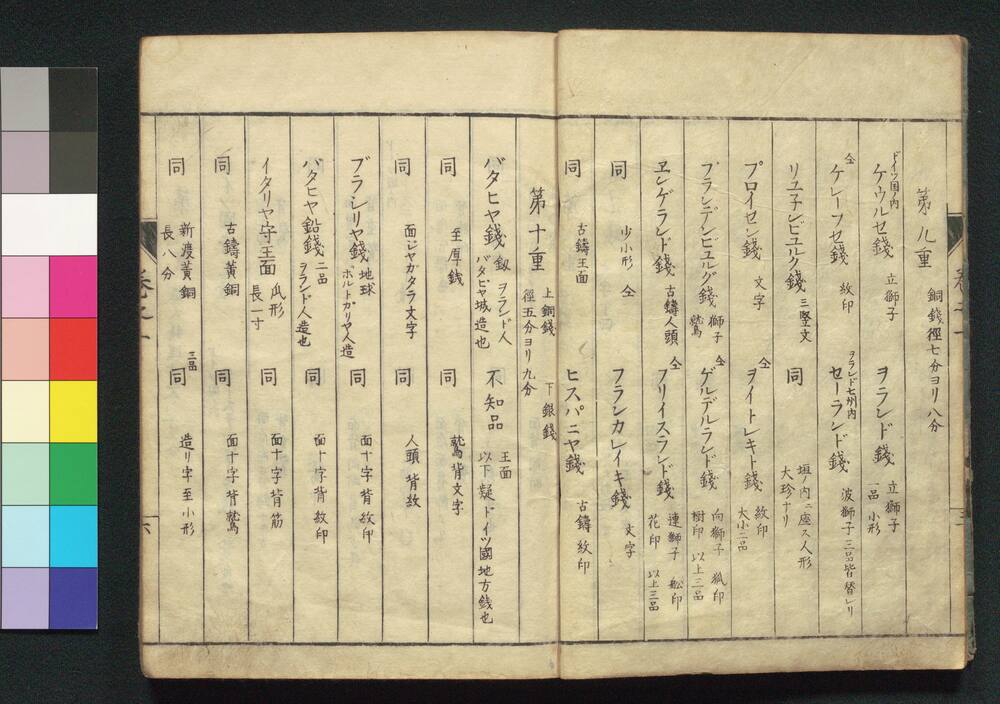 第九重
銅錢徑七分ヨリ八分
ドイツ国ノ内
ケウルセ錢 立獅子
ヲランド錢 立獅子
一品小形
仝
ケレーフセ錢 紋印
ヲランド七州内
セーランド錢 波獅子三品皆替レリ
リユ子ンビユルグ錢 三竪文
同 垣ノ内ニ座ス人形
大珍ナリ
プロイセン錢 文字
仝
ヲイトレキト錢 紋印
大小二品
ブランデンビユルグ錢 獅子
鷲
仝
ゲルデルランド錢 向獅子 狐印
樹印 以上三品
ヱンゲランド錢 古鑄人頭
仝
フリイスランド錢 連獅子 舩印
花印 以上三品
同 少小形 仝
フランカレイキ錢 文字
同 古鑄王面
ヒスパニヤ錢 古鑄紋印
第十重
上銅錢 下銀錢
徑五分ヨリ九分
バタヒヤ錢 ヲランド人
バタビヤ城造也
不知品 王面
以下疑ドイツ國地方錢也
同 至厚錢
同 鷲背文字
同 面ジヤガタラ文字
同 人頭背紋
ブラシリヤ錢 地球
ポルトガリヤ人造
同 面十字背紋印
バタヒヤ鉛錢 二品
ヲランド人造也
同 面十字背紋印
イタリヤ守王面 此形
長一寸
同 面十字背筋
同 古鑄黄銅
同 面十字背鷲
同 新渡黄銅
長八分
三品
同 造リ字至小形